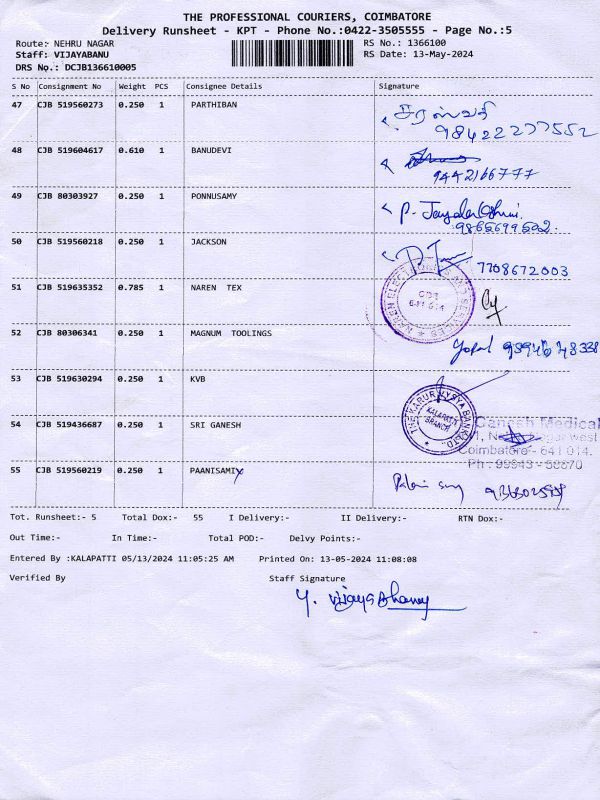 THE PROFESSIONAL COURIERS, COIMBATORE
Delivery Runsheet - KPT - Phone No.:0422-3505555 - Page No.:5
Route: NEHRU NAGAR RS No.: 1366100
Staff: VIJAYABANU RS Date: 13-May-2024
DRS No.: DCJB136610005
S No Consignment No Weight PCS Consignee Details Signature
47 CJB 519560273 0.250 1 PARTHIBAN
சரஸ்வதி
48 CJB 519604617 0.610 1 BANUDEVI
9442166777
49 CJB 80303927 0.250 1 PONNUSAMY
P.
50 CJB 519560218 0.250 1 JACKSON
7708672003
51 CJB 519635352 0.785 1 NAREN TEX
52 CJB 80306341 0.250 1 MAGNUM TOOLINGS
Gopal
53 CJB 519630294 0.250 1 KVB
THE KARUR VYSYA BANK LTD.
KALAPATTI
BRANCH
54 CJB 519436687 0.250 1 SRI GANESH
Ganesh Medical
Coimbatore - 641 014.
55 CJB 519560219 0.250 1 PAANISAMY
Tot. Runsheet:- 5 Total Dox:- 55 I Delivery:- II Delivery:- RTN Dox:-
Out Time:- In Time:- Total POD:- Delvy Points:-
Entered By :KALAPATTI 05/13/2024 11:05:25 AM Printed On: 13-05-2024 11:08:08
Verified By Staff Signature
Y. Vijaya Bhanu